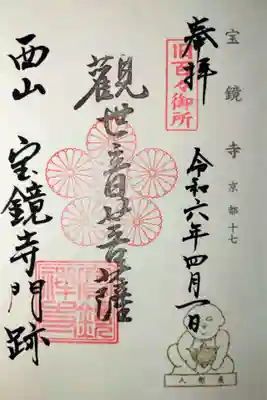 宝鏡寺 京都十七
奉拝
旧百々御所
令和六年四月一日
觀世音菩薩
西山
宝鏡寺門跡
人形展